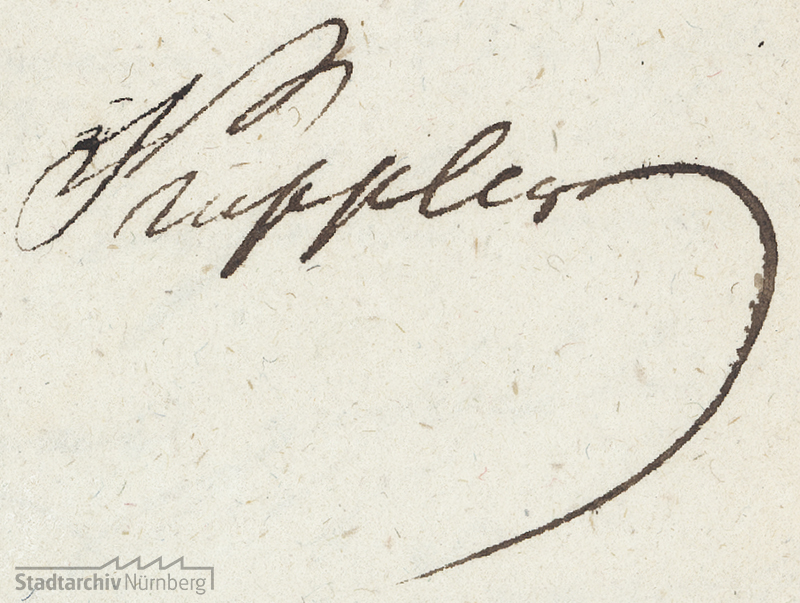 Kuppler
Stadtarchiv Nürnberg